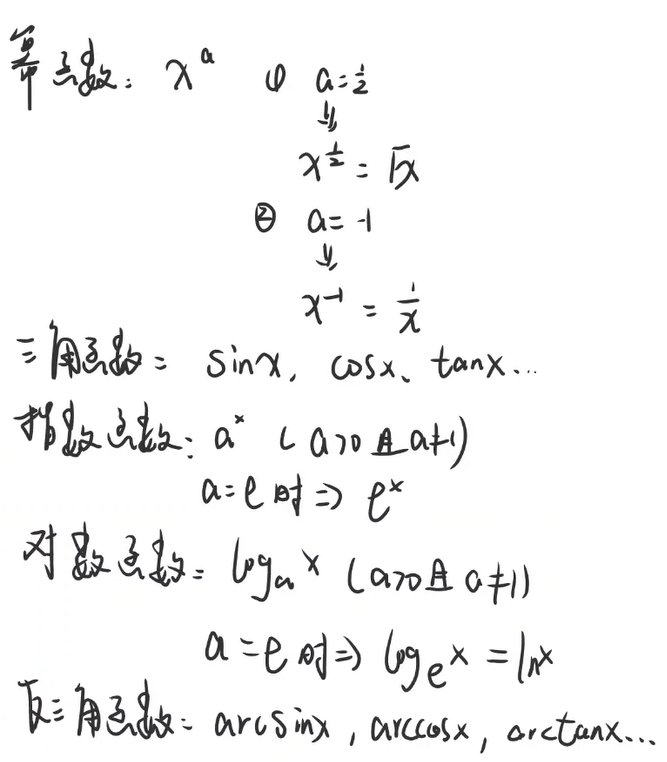 幂函数: x^a ① a=1/2
↓
x^(1/2) = √x
② a= -1
↓
x^-1 = 1/x
三角函数: sinx, cosx、tanx...
指数函数: a^x (a>0且a≠1)
a=e时⇒ e^x
对数函数: log_a x (a>0且a≠1)
a=e时⇒ log_e x = lnx
反三角函数: arcsinx, arccosx, arctanx...